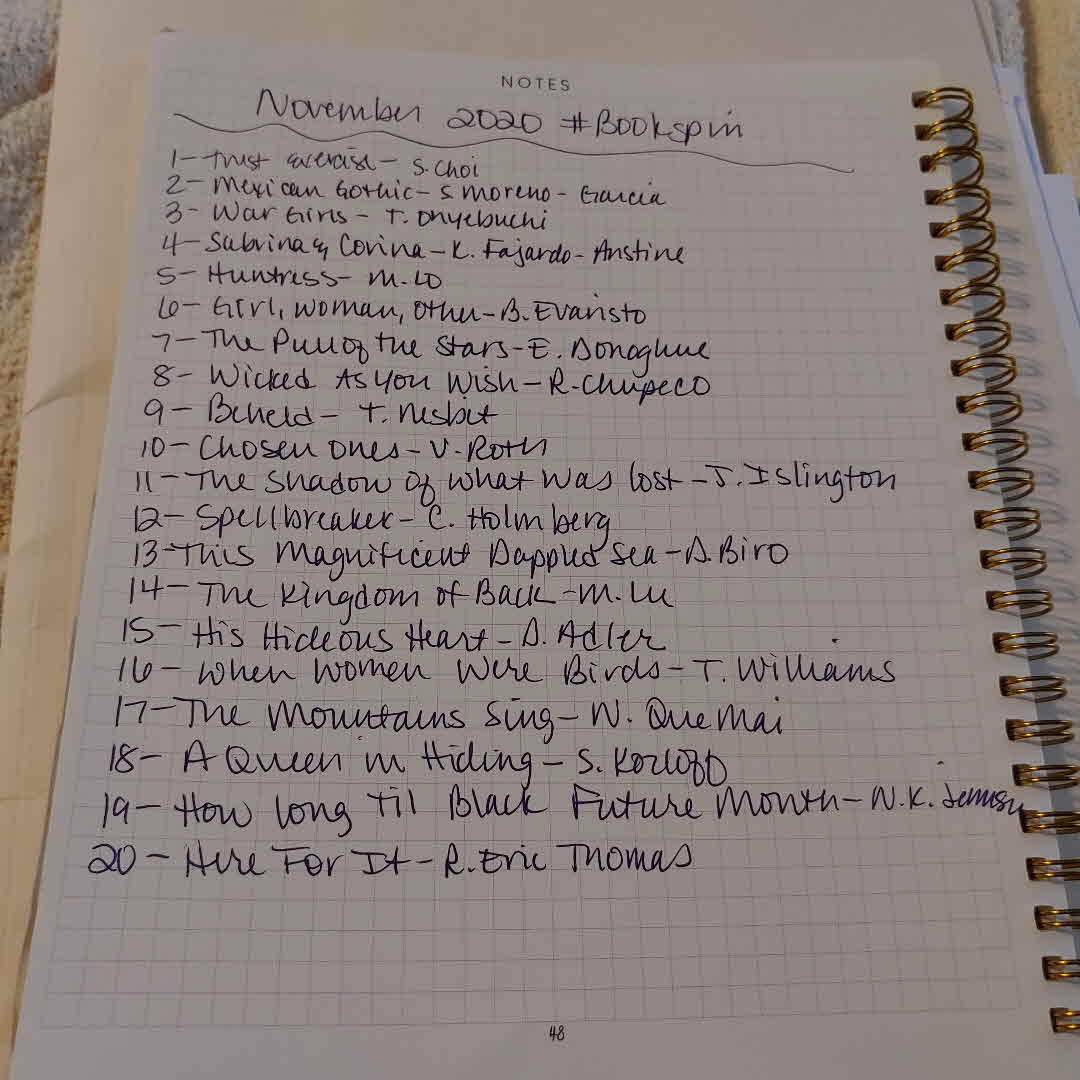 NOTES
November 2020 #Bookspin
1- Trust exercise - S. Choi
2- Mexican Gothic - S Moreno - Garcia
3- War Girls - T. Onyebuchi
4- Sabrina & Corina - K. Fajardo - Anstine
5- Huntress - M. Lo
6- Girl, Woman, Other - B. Evaristo
7- The Pull of the Stars - E. Donoghue
8- Wicked As You Wish - R. Chupeco
9- Beheld - T. Nesbit
10- Chosen Ones - V. Roth
11- The Shadow of What Was Lost - J. Islington
12- Spellbreaker - C. Holmberg
13- This Magnificent Dappled Sea - D. Biro
14- The Kingdom of Back - M. Lu
15- His Hideous Heart - D. Adler
16- When Women Were Birds - T. Williams
17- The Mountains Sing - N. Que Mai
18- A Queen in Hiding - S. Kozloff
19- How Long Til Black Future Month - N.K. Jemisin
20- Here For It - R. Eric Thomas
48